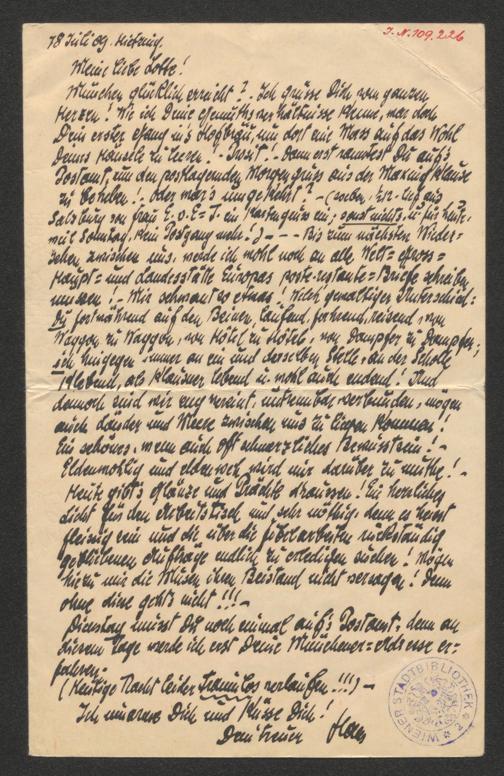 I.N. 109.226
18 Juli 09. Hietzing.
Meine liebe Lotte!
München glücklich erreicht? Ich grüsse Dich von ganzem
Herzen! Wie ich Deine Gemüthsverhältnisse kenne, war doch
Dein erster Gang in's Hofbräu, um dort eine Mass auf das Wohl
Deines zu leeren! - Prosit! - Dann erst ranntest Du auf's
Postamt, um den postlagernden Morgengruss aus der
zu beheben! oder war's umgekehrt? - (soeben, aus
Salzburg von Frau ein Kartengruss ein; sonst nichts u. für heute
weil Sonntag, kein Postgang mehr!) - - - Bis zum nächsten Wieder=
sehen zwischen uns, werde ich wohl noch an alle Welt= Gross=
Haupt= und Landesstädte Europas poste-restante=Briefe schreiben
müssen! - Mir schwant so etwas! Welch gewaltiger Unterschied:
Du fortwährend auf den Beinen, laufend, fahrend, reisend, von
Waggon zu Waggon, von Hôtel zu Hôtel, von Dampfer zu Dampfer;
ich hingegen immer an ein und derselben Stelle, an der Scholle
klebend, als Klausner lebend u. wohl auch endend! Und
dennoch sind wir eng vereint, untrennbar verbunden, mögen
auch Länder und Meere zwischen uns zu liegen kommen!
Ein schönes, wenn auch oft schmerzliches Bewusstsein! -
und wird mir darüber zu muthe! -
Heute gibt's Glänze und Prächte draussen! Ein herrliches
Licht für den Arbeitstisch und sehr nöthig, denn es heisst
fleissig sein und die über die rückständig
gebliebenen Aufträge endlich zu erledigen suchen! Mögen
hiezu mir die Musen ihren Beistand nicht versagen! Denn
ohne diese geht's nicht!!! -
Dienstag musst Du noch einmal auf's Postamt, denn an
diesem Tage werde ich erst Deine Münchener=Adresse er=
fahren. -
(Heutige Nacht leider traumlos verlaufen!!!) -
Ich umarme Dich und küsse Dich!
Dein treuer
WIENER STADTBIBLIOTHEK